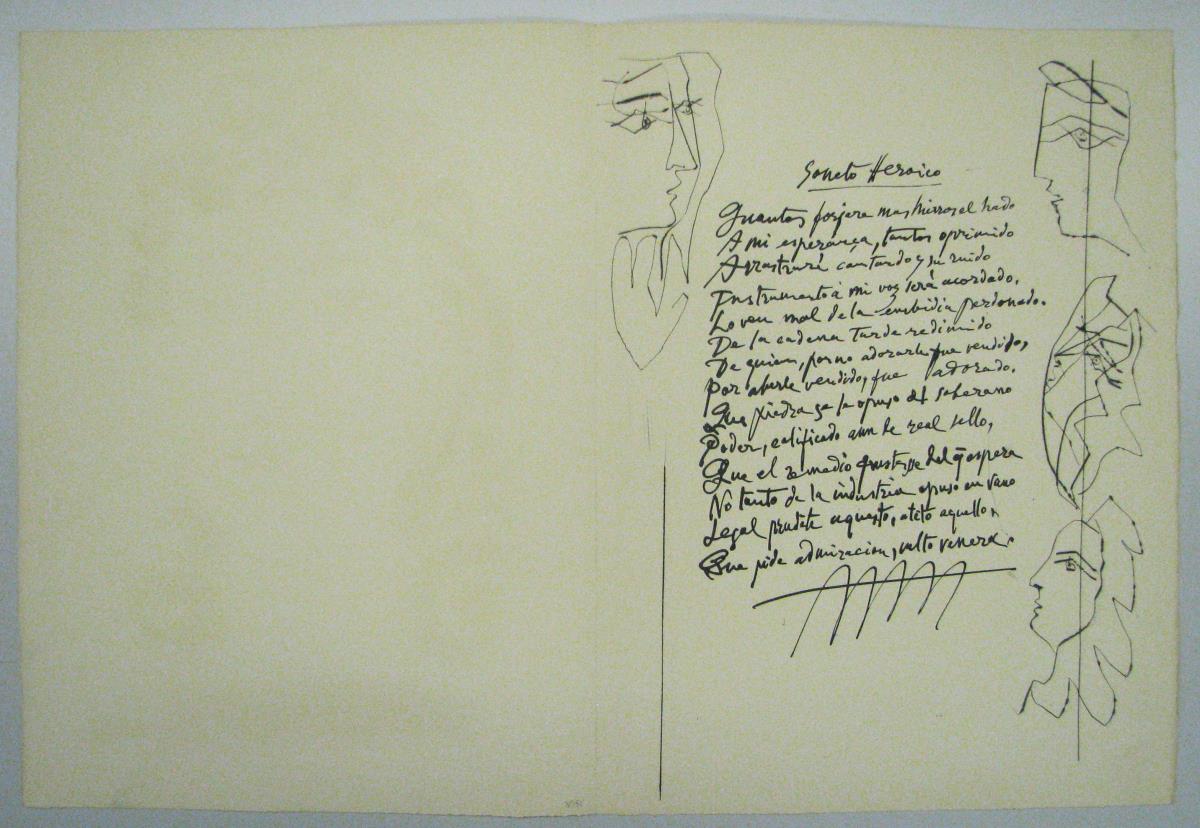 Soneto Heroico
Quantos forjare mas hierros el hado
A mi esperança, tantos oprimido
Arrastraré cantando y su ruido
Instrumento à mi voz será acordado.
Joven mal de la embidia perdonado.
De la cadena tarde redimido
De quien, por no adorarle fue vendido,
Por aberle vendido, fue adorado.
Que piedra se le opuso al soberano
Poder, calificado aun de real sello,
Que el remedio frustasse del q̄ espera
No tanto de la industria opuso en vano
Legal aquesto, aquello,
Que pide admiracion, culto venera.